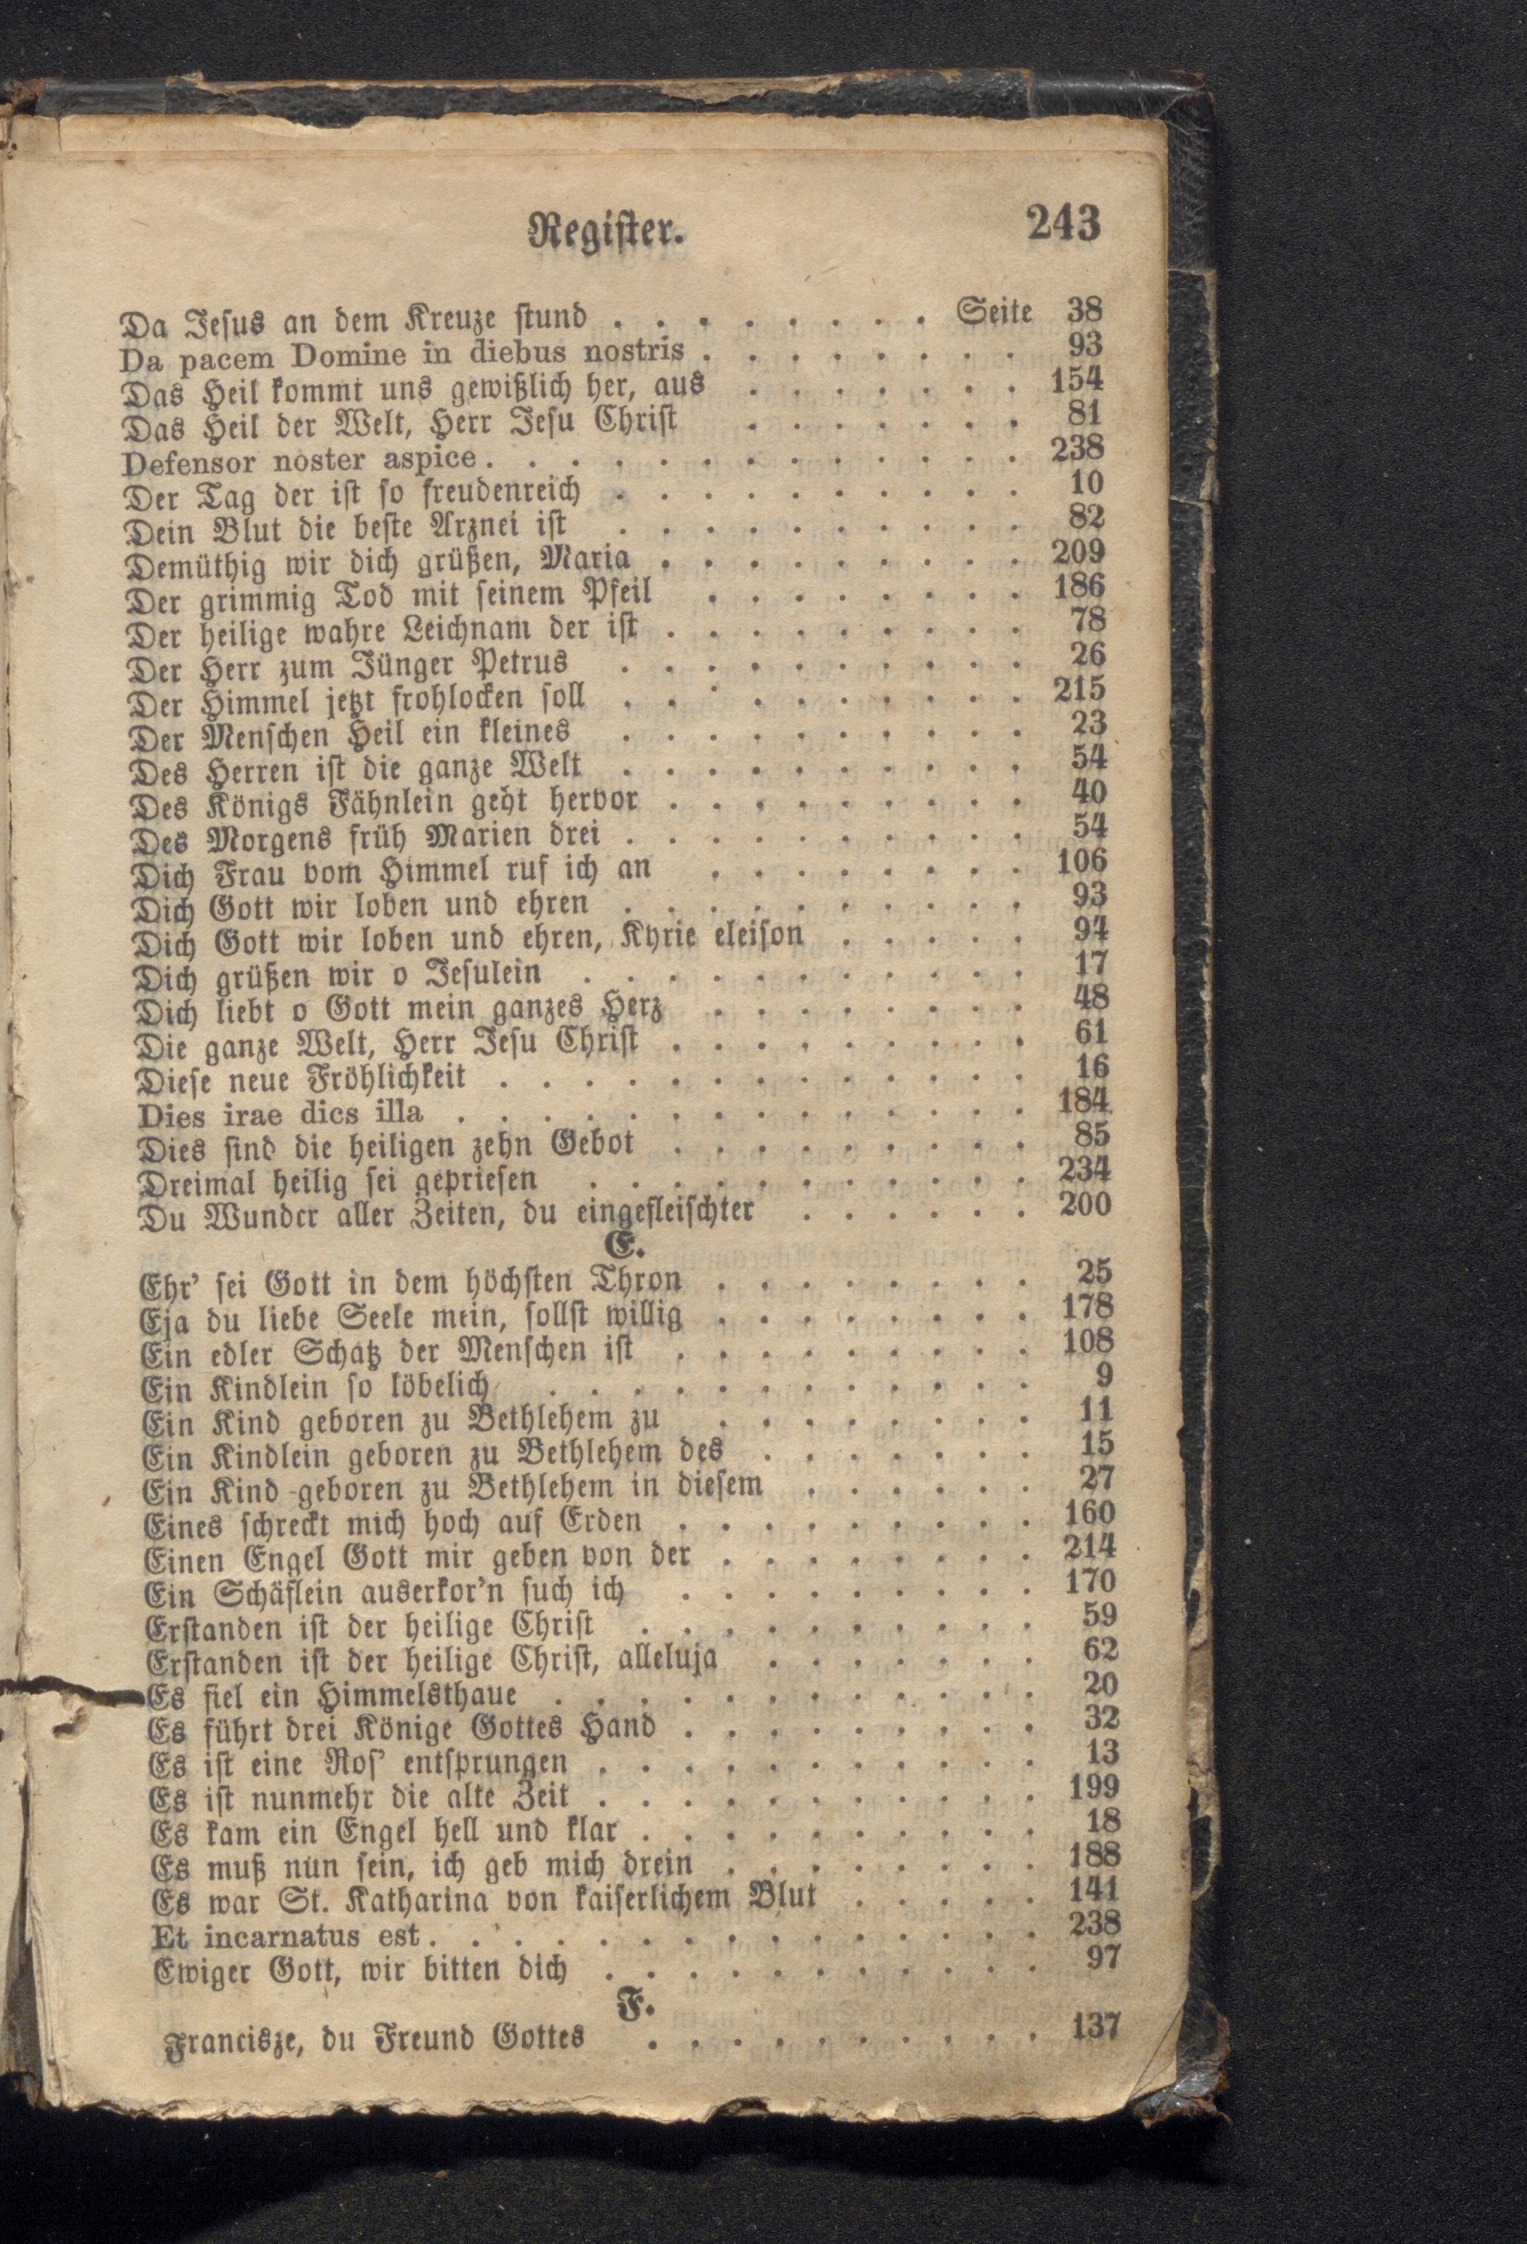 Register. 243
Da Jesus an dem Kreuze stund . . . . . . . . Seite 38
Da pacem Domine in diebus nostris . . . . . . . . 93
Das Heil kommt uns gewißlich her, aus . . . . . . . 154
Das Heil der Welt, Herr Jesu Christ . . . . . . . 81
Defensor noster aspice . . . . . . . . . . . . . 238
Der Tag der ist so freudenreich . . . . . . . . . . 10
Dein Blut die beste Arznei ist . . . . . . . . . . 82
Demüthig wir dich grüßen, Maria . . . . . . . . . 209
Der grimmig Tod mit seinem Pfeil . . . . . . . . 186
Der heilige wahre Leichnam der ist . . . . . . . . . 78
Der Herr zum Jünger Petrus . . . . . . . . . . 26
Der Himmel jetzt frohlocken soll . . . . . . . . . . 215
Der Menschen Heil ein kleines . . . . . . . . . . 23
Des Herren ist die ganze Welt . . . . . . . . . . 54
Des Königs Fähnlein geht hervor . . . . . . . . . 40
Des Morgens früh Marien drei . . . . . . . . . . 54
Dich Frau vom Himmel ruf ich an . . . . . . . . 106
Dich Gott wir loben und ehren . . . . . . . . . . 93
Dich Gott wir loben und ehren, Kyrie eleison . . . . . 94
Dich grüßen wir o Jesulein . . . . . . . . . . . 17
Dich liebt o Gott mein ganzes Herz . . . . . . . . 48
Die ganze Welt, Herr Jesu Christ . . . . . . . . . 61
Diese neue Fröhlichkeit . . . . . . . . . . . . . 16
Dies irae dics illa . . . . . . . . . . . . . . 184
Dies sind die heiligen zehn Gebot . . . . . . . . . 85
Dreimal heilig sei gepriesen . . . . . . . . . . . 234
Du Wunder aller Zeiten, du eingefleischter . . . . . . 200
E.
Ehr' sei Gott in dem höchsten Thron . . . . . . . . 25
Eja du liebe Seele mein, sollst willig . . . . . . . . 178
Ein edler Schatz der Menschen ist . . . . . . . . . 108
Ein Kindlein so löbelich . . . . . . . . . . . . 9
Ein Kind geboren zu Bethlehem zu . . . . . . . . 11
Ein Kindlein geboren zu Bethlehem des . . . . . . . 15
Ein Kind geboren zu Bethlehem in diesem . . . . . . 27
Eines schreckt mich hoch auf Erden . . . . . . . . . 160
Einen Engel Gott mir geben von der . . . . . . . . 214
Ein Schäflein auserkor'n such ich . . . . . . . . . 170
Erstanden ist der heilige Christ . . . . . . . . . . 59
Erstanden ist der heilige Christ, alleluja . . . . . . . 62
Es fiel ein Himmelsthaue . . . . . . . . . . . . 20
Es führt drei Könige Gottes Hand . . . . . . . . . 32
Es ist eine Ros' entsprungen . . . . . . . . . . . 13
Es ist nunmehr die alte Zeit . . . . . . . . . . . 199
Es kam ein Engel hell und klar . . . . . . . . . . 18
Es muß nun sein, ich geb mich drein . . . . . . . . 188
Es war St. Katharina von kaiserlichem Blut . . . . . 141
Et incarnatus est . . . . . . . . . . . . . . . 238
Ewiger Gott, wir bitten dich . . . . . . . . . . . 97
F.
Francisze, du Freund Gottes . . . . . . . . . . 137